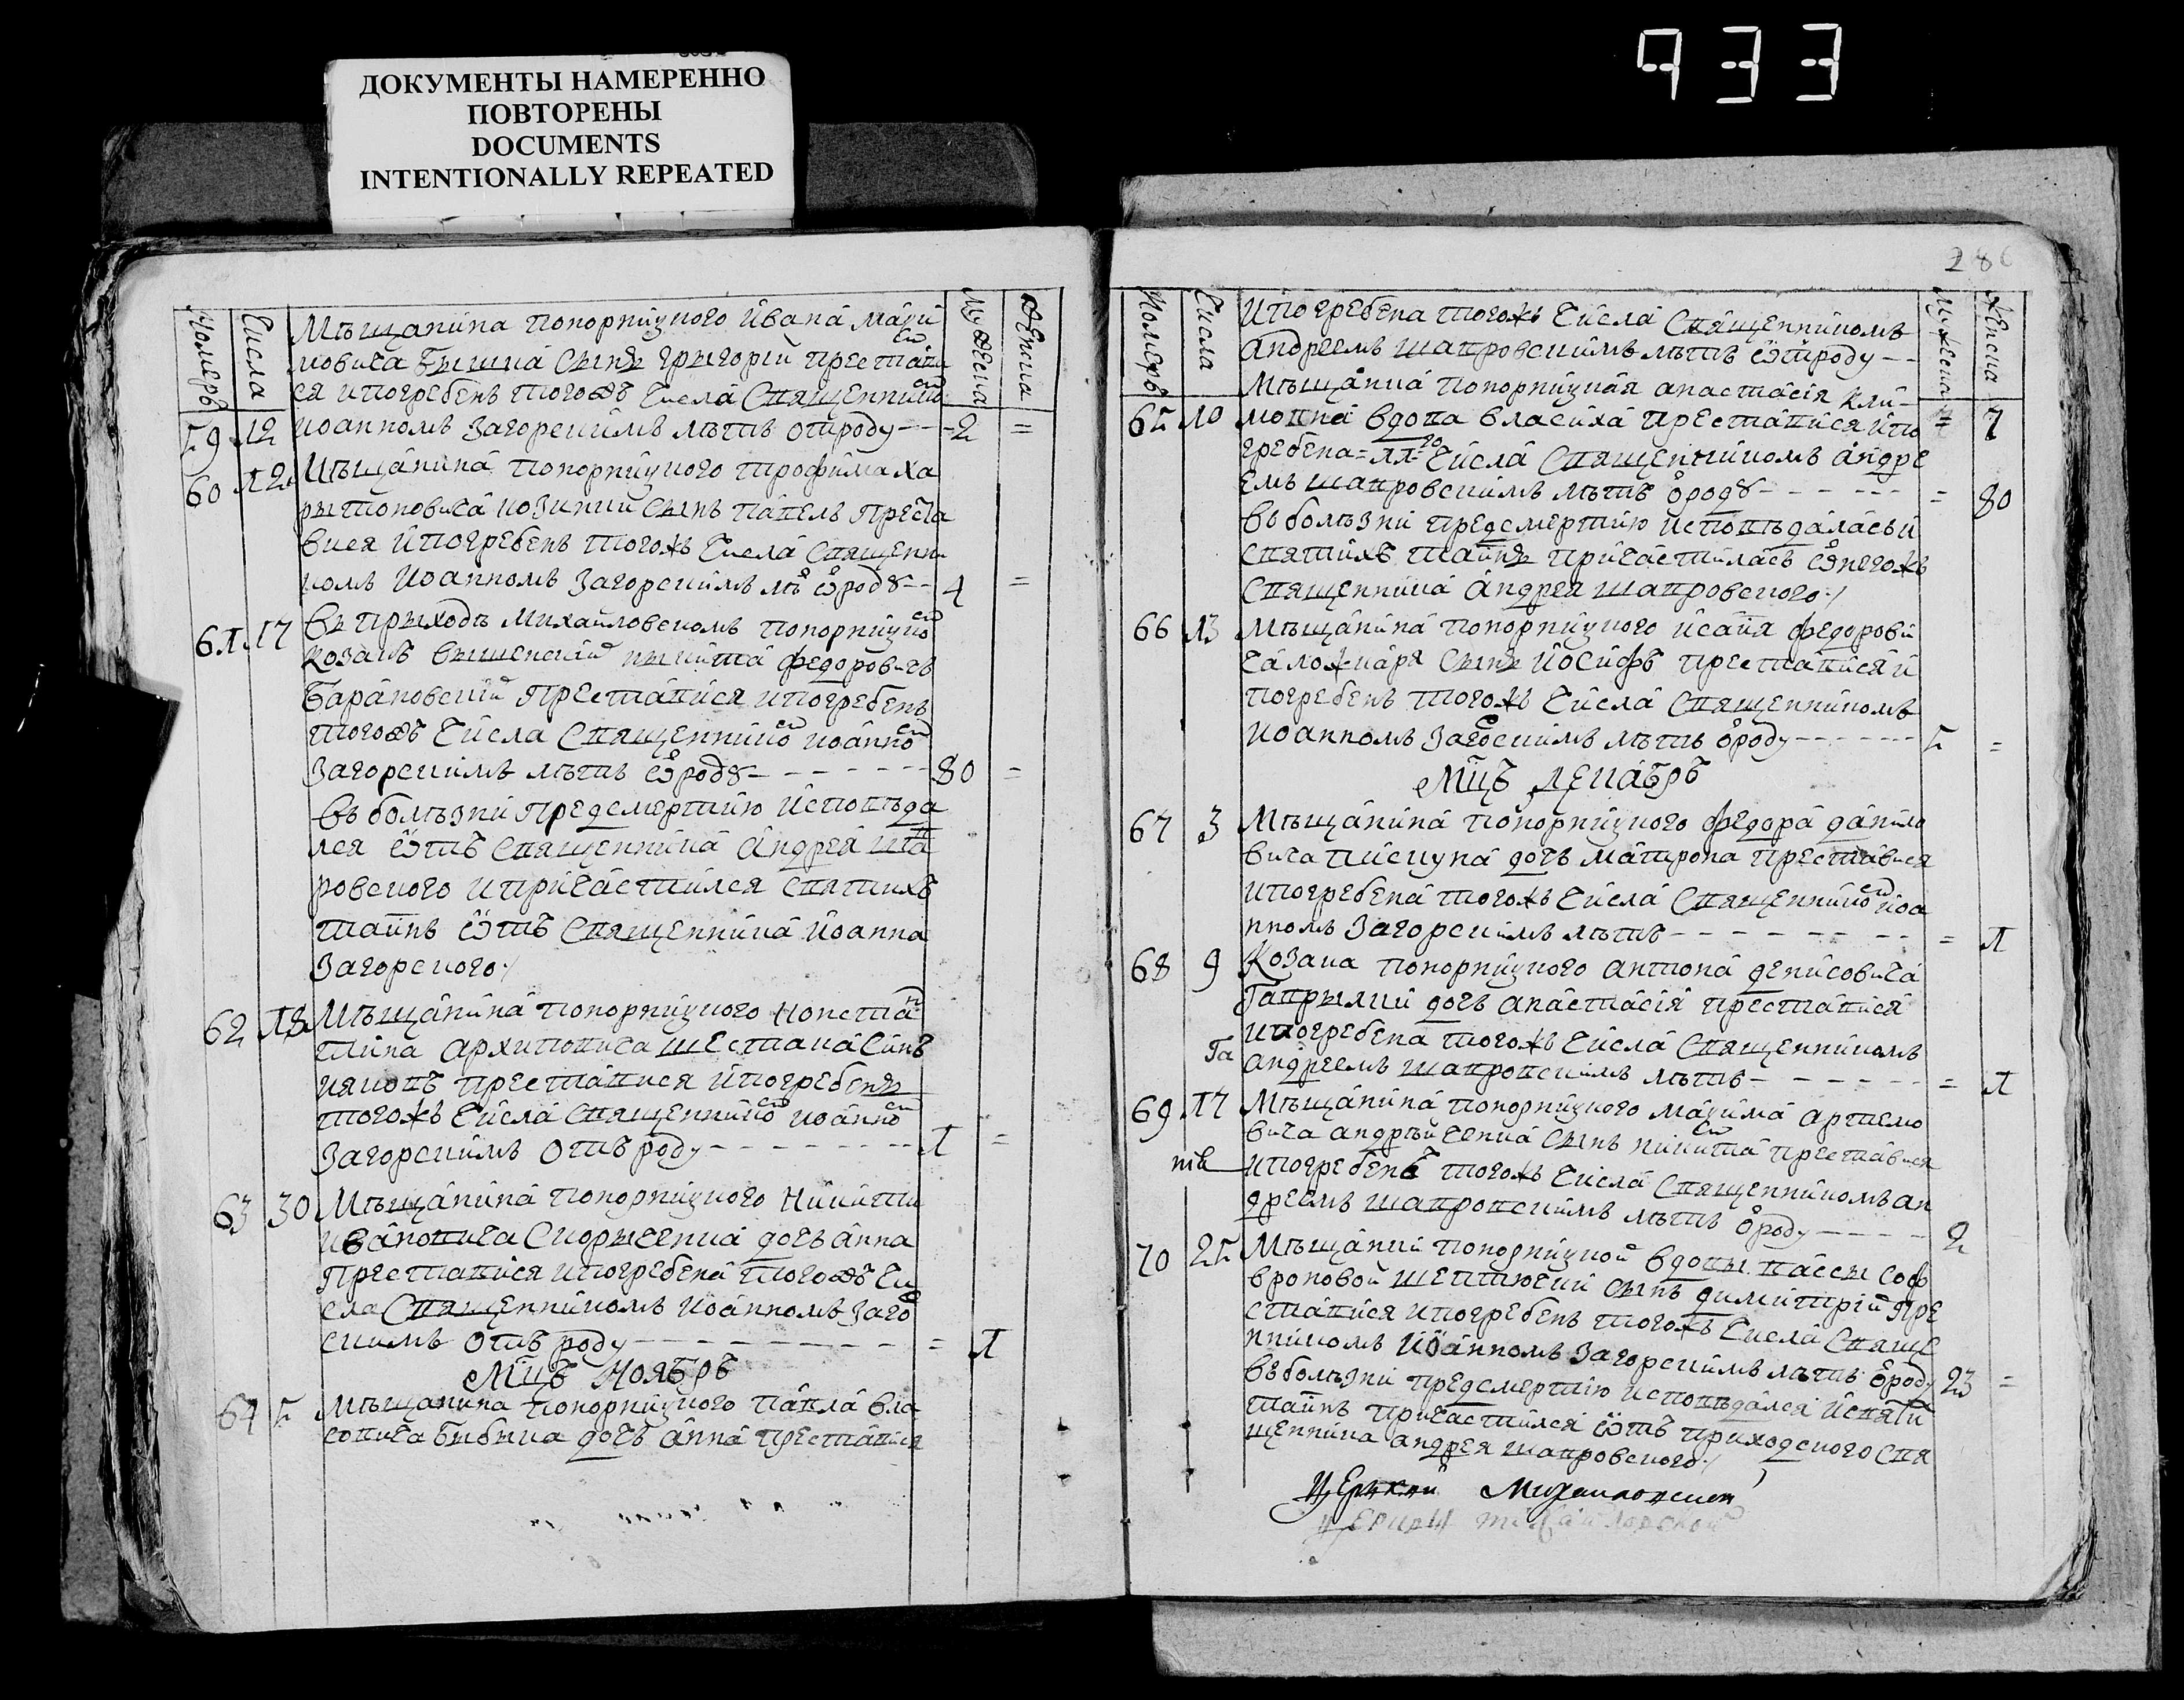 933
ДОКУМЕНТЫ НАМЕРЕННО
ПОВТОРЕНЫ
DOCUMENTS
INTENTIONALLY REPEATED
Номеръ Числа Мужеска Женска
Мѣщанина понорницкого Ивана Макси
мовича сынъ Григорій престави
ся и погребенъ тогожъ числа священнико
59 12 Иоанномъ Загорскимъ лѣтъ отроду - - - 2 =
60 12 Мѣщанина понорницкого Трофима Ха
ритоновича Козинки сынъ Павелъ преста
вися и погребенъ тогожъ числа священни
комъ Иоанномъ Загорскимъ лѣ ѿроду - - 4 =
61 17 Въ прыходѣ Михайловскомъ понорницко
козакъ Никита Федоровичъ
Барановскій преставися и погребенъ
тогожъ числа священнико Иоанно
Загорскимъ лѣтъ ѿроду - - - - - - 80 =
въ болѣзни предсмертию исповѣда
лся ѿтъ священника Андрея Шап
ровского и причастился святихъ
таинъ ѿтъ священника Иоанна
Загорского
62 18 Мѣщанина понорницкого Конста
тина Архиповича Шестака синъ
Ияковъ преставися и погребенъ
тогожъ числа священнико Иоанно
Загорскимъ отъ роду - - - - - - - 1 =
63 30 Мѣщанина понорницкого Никити
Ивановича Сидорыченка дочъ Анна
преставися и погребена тогожъ чи
сла священникомъ Иоанномъ Заго
скимъ отъ роду - - - - - - - - = 1
Мцъ Ноябръ
64 5 Мѣщанина понорницкого Павла Вла
совича Бибика дочъ Анна преставися
286
Номеръ Числа Мужеска Женска
и погребена тогожъ числа священникомъ
Андреемъ Шапровскимъ лѣтъ ѿтроду - - = 7
65 10 Мѣщанка понорницкая Анастасія Кли-
мовна вдова Власиха преставися и по
гребена = 11 го числа священникомъ Андре
емъ Шапровскимъ лѣтъ ѿроду - - - - - - = 80
въ болѣзни предсмертию исповѣдалась и
святихъ таинъ причастилась ѿ негожъ
священника Андрея Шапровского
66 13 Мѣщанина понорницкого Исаия Федорови
ча Ложкаря сынъ Иосифъ преставися и
погребенъ тогожъ числа священникомъ
Иоанномъ Загоскимъ лѣтъ ѿроду - - - - - - - 5 =
Мцъ Декабръ
67 3 Мѣщанина понорницкого Федора Данило
вича Пискуна дочъ Матрона преставися
и погребена тогожъ числа священнико Иоа
нномъ Загорскимъ лѣтъ - - - - - - - - = 1
68 9 Козака понорницкого Антона Денисовича
Гаврылки дочъ Анастасія преставися
и погребена тогожъ числа священникомъ
Андреемъ Шапровскимъ лѣтъ - - - - - - = 1
69 17 Мѣщанина понорницкого Максима Артемо
вича Андрѣйченка сынъ Никита преставися
и погребенъ тогожъ числа священникомъ Ан
дреемъ Шапровскимъ лѣтъ ѿроду - - - - 2
70 25 Мѣщанки понорницкой вдовы Вассы Соф
роновой сынъ Димитрій пре
ставися и погребенъ тогожъ числа свяще
нникомъ Иоанномъ Загорскимъ лѣтъ ѿроду 23 =
въ болѣзни предсмертию исповѣдался и святи
таинъ причастился ѿтъ приходского свя
щенника Андрея Шапровского
Церкви Михайловской